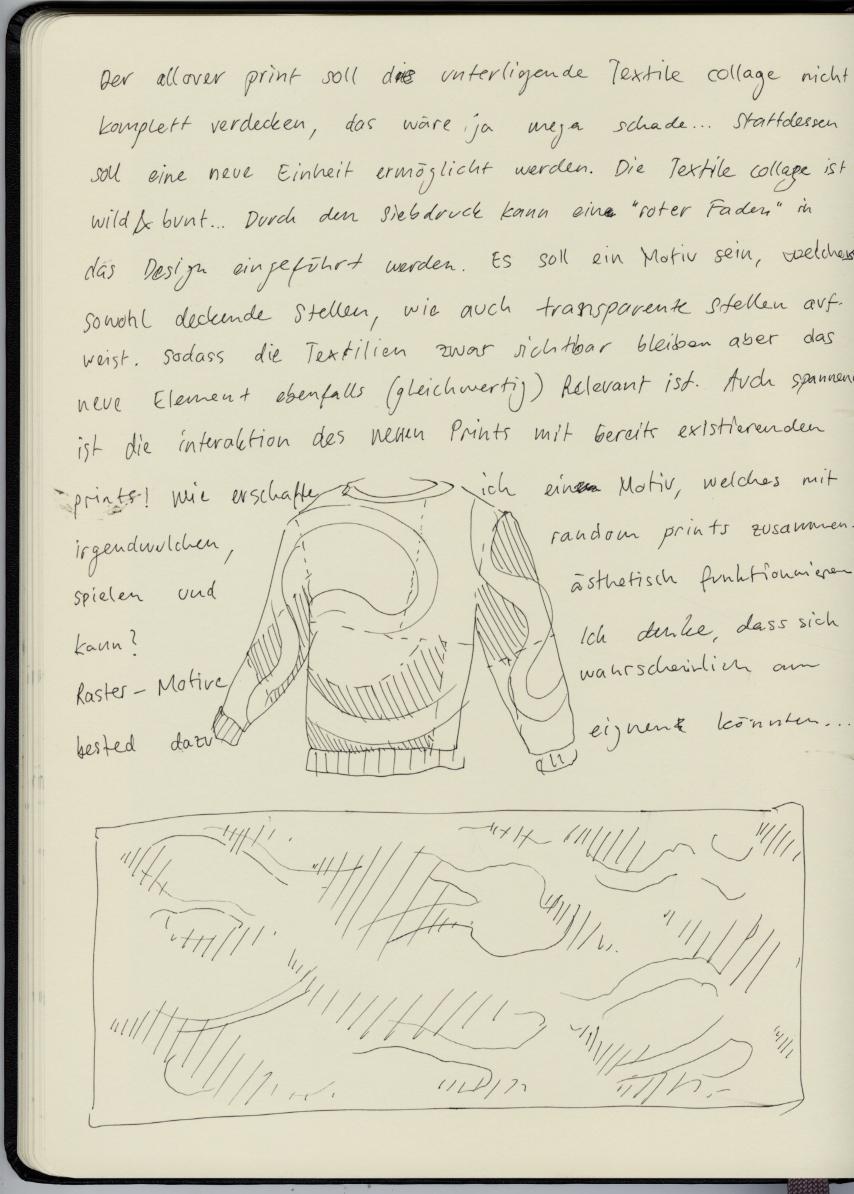 Der allover print soll die unterligende Textile collage nicht
komplett verdecken, das wäre ja mega schade... Stattdessen
soll eine neue Einheit ermöglicht werden. Die Textile collage ist
wild & bunt... Durch den Siebdruck kann ein "roter Faden" in
das Design eingeführt werden. Es soll ein Motiv sein, welches
sowohl deckende Stellen, wie auch transparente stellen auf-
weist. sodass die Textilien zwar sichtbar bleiben aber das
neue Element ebenfalls (gleichwertig) Relevant ist. Auch spannend
ist die interaktion des neuen Prints mit bereits existierenden
prints! Wie erschaffe ich ein Motiv, welches mit
irgendwelchen, random prints zusammen-
spielen und ästhetisch funktionieren
kann? Ich denke, dass sich
Raster-Motive wahrscheinlich am
bested dazu eignen könnten...